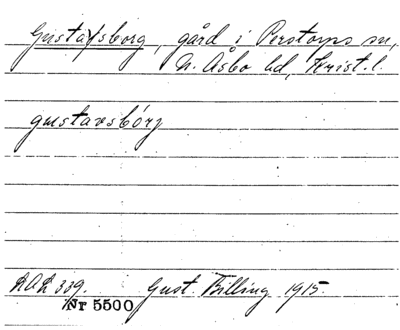 Gustafsborg, gård i Perstorps sn,
N. Åsbo hd, Krist. l.
gustavsbórj
LAL 339. Gust. Billing 1915.
Nr 5500